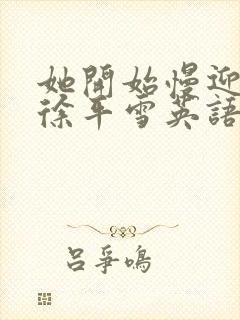 她開始慢迎
徐平雪英語
呂爭鳴